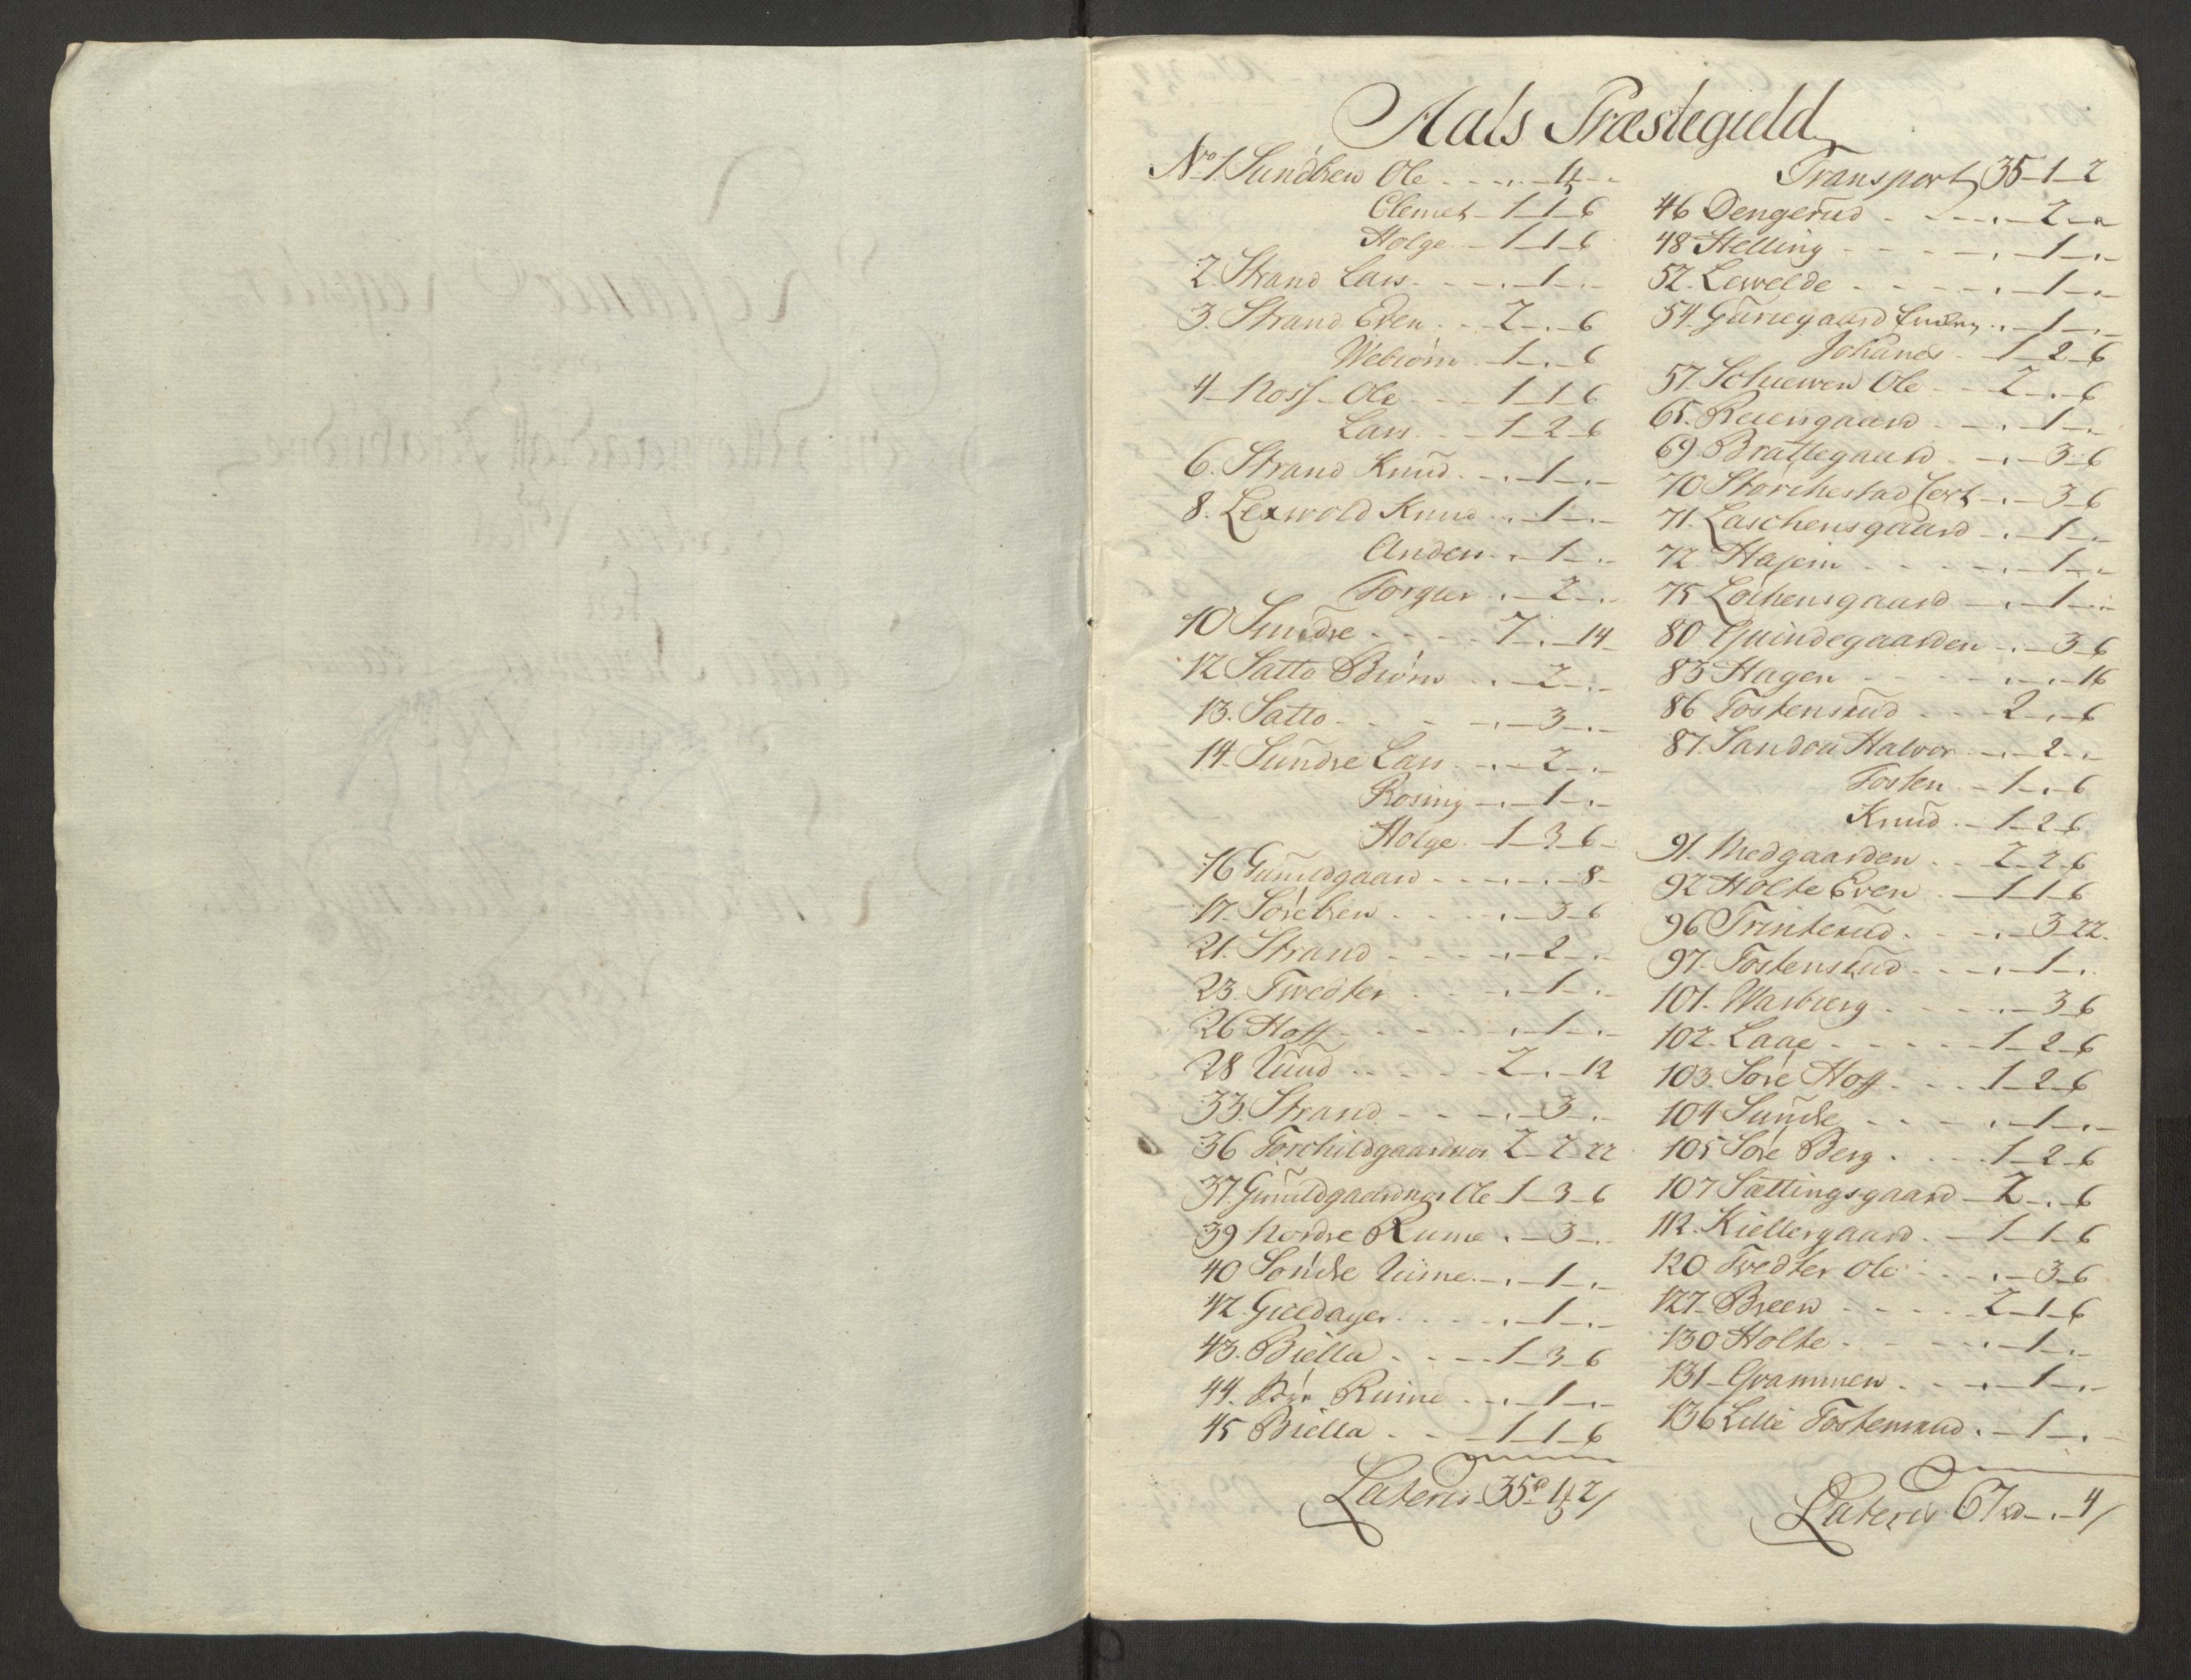 Aals Præstegield
No 1. Sundbren Ole - - . - 1 - -
Clemet - 1 - 1 - 6
Holge - 1 - 1 - 6
2. Strand Lars - - . - 1 - . -
3. Strand Even - - 2 - . - 6
Webiörn - 1 - . - 6
4 - Noss - Ole - - 1 - 1 - 6
Lars - - 1 - 2 - 6
6. Strand Knud - . - 1 - . -
8. Lexwold Knud - . - 1 - . -
Anders - . - 1 - . -
Torger - . - 2 - . -
10 Sundre - - - - 7 - . - 14
12 Satto Biörn - . - 2 - . -
13. Satto - - - - . - 3 - . -
14. Sundre Lars - . - 2 - . -
Rosing - . - 1 - . -
Holge - 1 - 3 - 6
16 Gunuldgaard - - . - . - 8
17. Sörebren - - - . - 3 - 6
21. Strand - - - . - 2 - . -
23. Twedter - - - . - 1 - . -
26 Hoff - - - - . - 1 - . -
28 Ruud - - - - 2 - . - 12
33. Strand - - - . - 3 - . -
36 Torchildgaardnor 2 - 2 - 22
37. Gunuldgaardnor Ole 1 - 3 - 6
39 Nordre Rume . - 3 - . -
40 Sondre Rime - . - 1 - . -
42. Guldager - - - . - 1 - . -
43. Biella - - - 1 - 3 - 6
44. Ruine - . - 1 - . -
45 Biella - - - 1 - 1 - 6
Lateris 35 rd 1 ort 2 /
Transport 35 - 1 - 2
46 Dengerud - - - . - 2 - . -
48 Helling - - - - . - 1 - . -
52. Lewelde - - - - . - 1 - . -
54. Guriegaard . - 1 - . -
Johanes - 1 - 2 - 6
57. Schuewen Ole - - 2 - . - 6
65. Reiersgaard - - . - 1 - . -
69. Brattegaard - . - 3 - 6
70 Storchestad . - 3 - 6
71. Laschensgaard - . - 1 - . -
72. Hajem - - - - . - 1 - . -
75 Lochensgaard - . - 1 - . -
80 Guindegaarden - . - 3 - 6
83 Hagen - - - - . - . - 16
86 Tostensrud - - - 2 - . - 6
87. Sandou Halvor - . - 2 - . -
Tosten - 1 - . - 6
Knud - 1 - 2 - 6
91. Medgaarden - - 2 - 2 - 6
92 Holte Even - - 1 - 1 - 6
96 Trinterud - - - . - 3 - 22
97. Tostensrud - - - . - 1 - .
101. Warbierg - - - . - 3 - 6
102. Laae - - - - 1 - 2 - 6
103. Sore Hoff - - - 1 - 2 - 6
104 Sundre - - - . - 1 - . -
105 Sore Berg - - - 1 - 2 - 6
107 Sættingsgaard - 2 - . - 6
112. Kiellergaard - - 1 - 1 - 6
120 Twedter Ole - - . - 3 - 6
127. Breen - - - - 2 - 1 - 6
130 Holte - - - - . - 1 - . -
131 - Grammen - - . - 1 - . -
136 Lille Tostensrud . - 1 - . -
Lateris 67 rd - . - 4 /